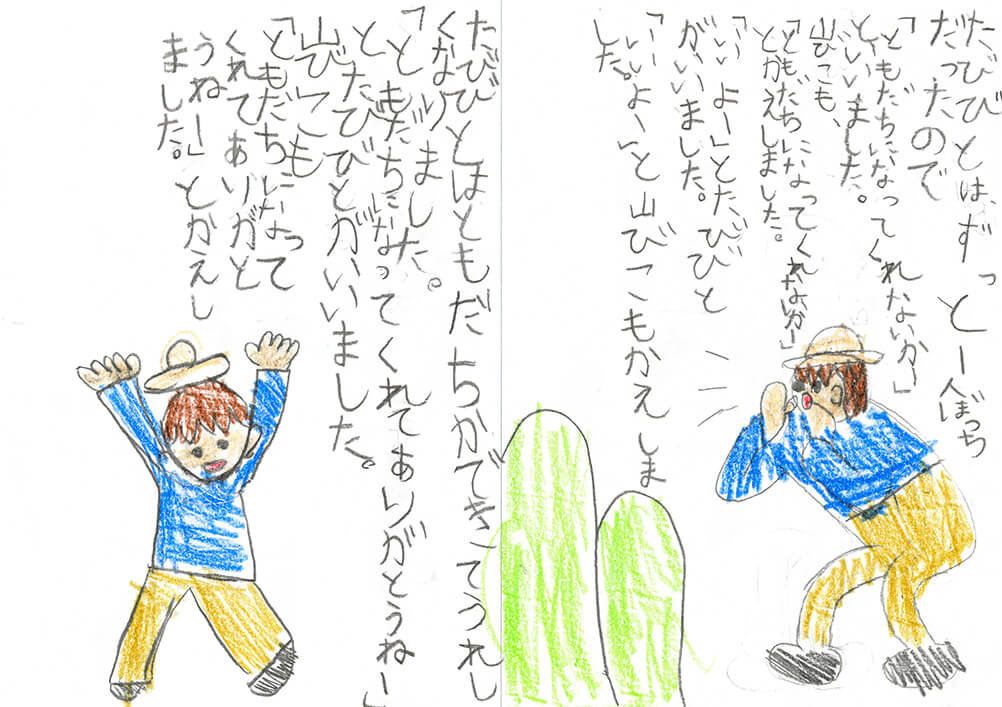 たびびとは、ずっと一人ぼっち
だったので
「ともだちになってくれないか」
といいました。
山びこも、
「ともだちになってくれないか」
とかえしました。
「いいよー」とたびびと
がいいました。
「いいよー」と山びこもかえしま
した。
たびびとはともだちができてうれし
くなりました。
「ともだちになってくれてありがとうねー」
とたびびとがいいました。
山びこも
「ともだちになって
くれてありがと
うねー」とかえし
ました。